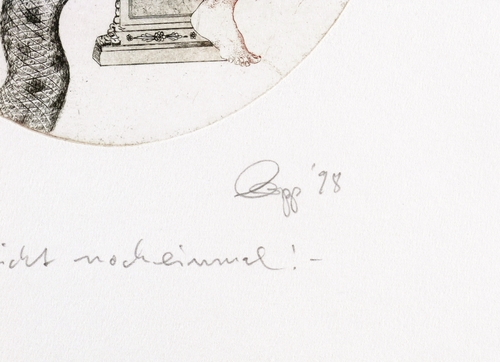 '98
icht nocheinmal! -